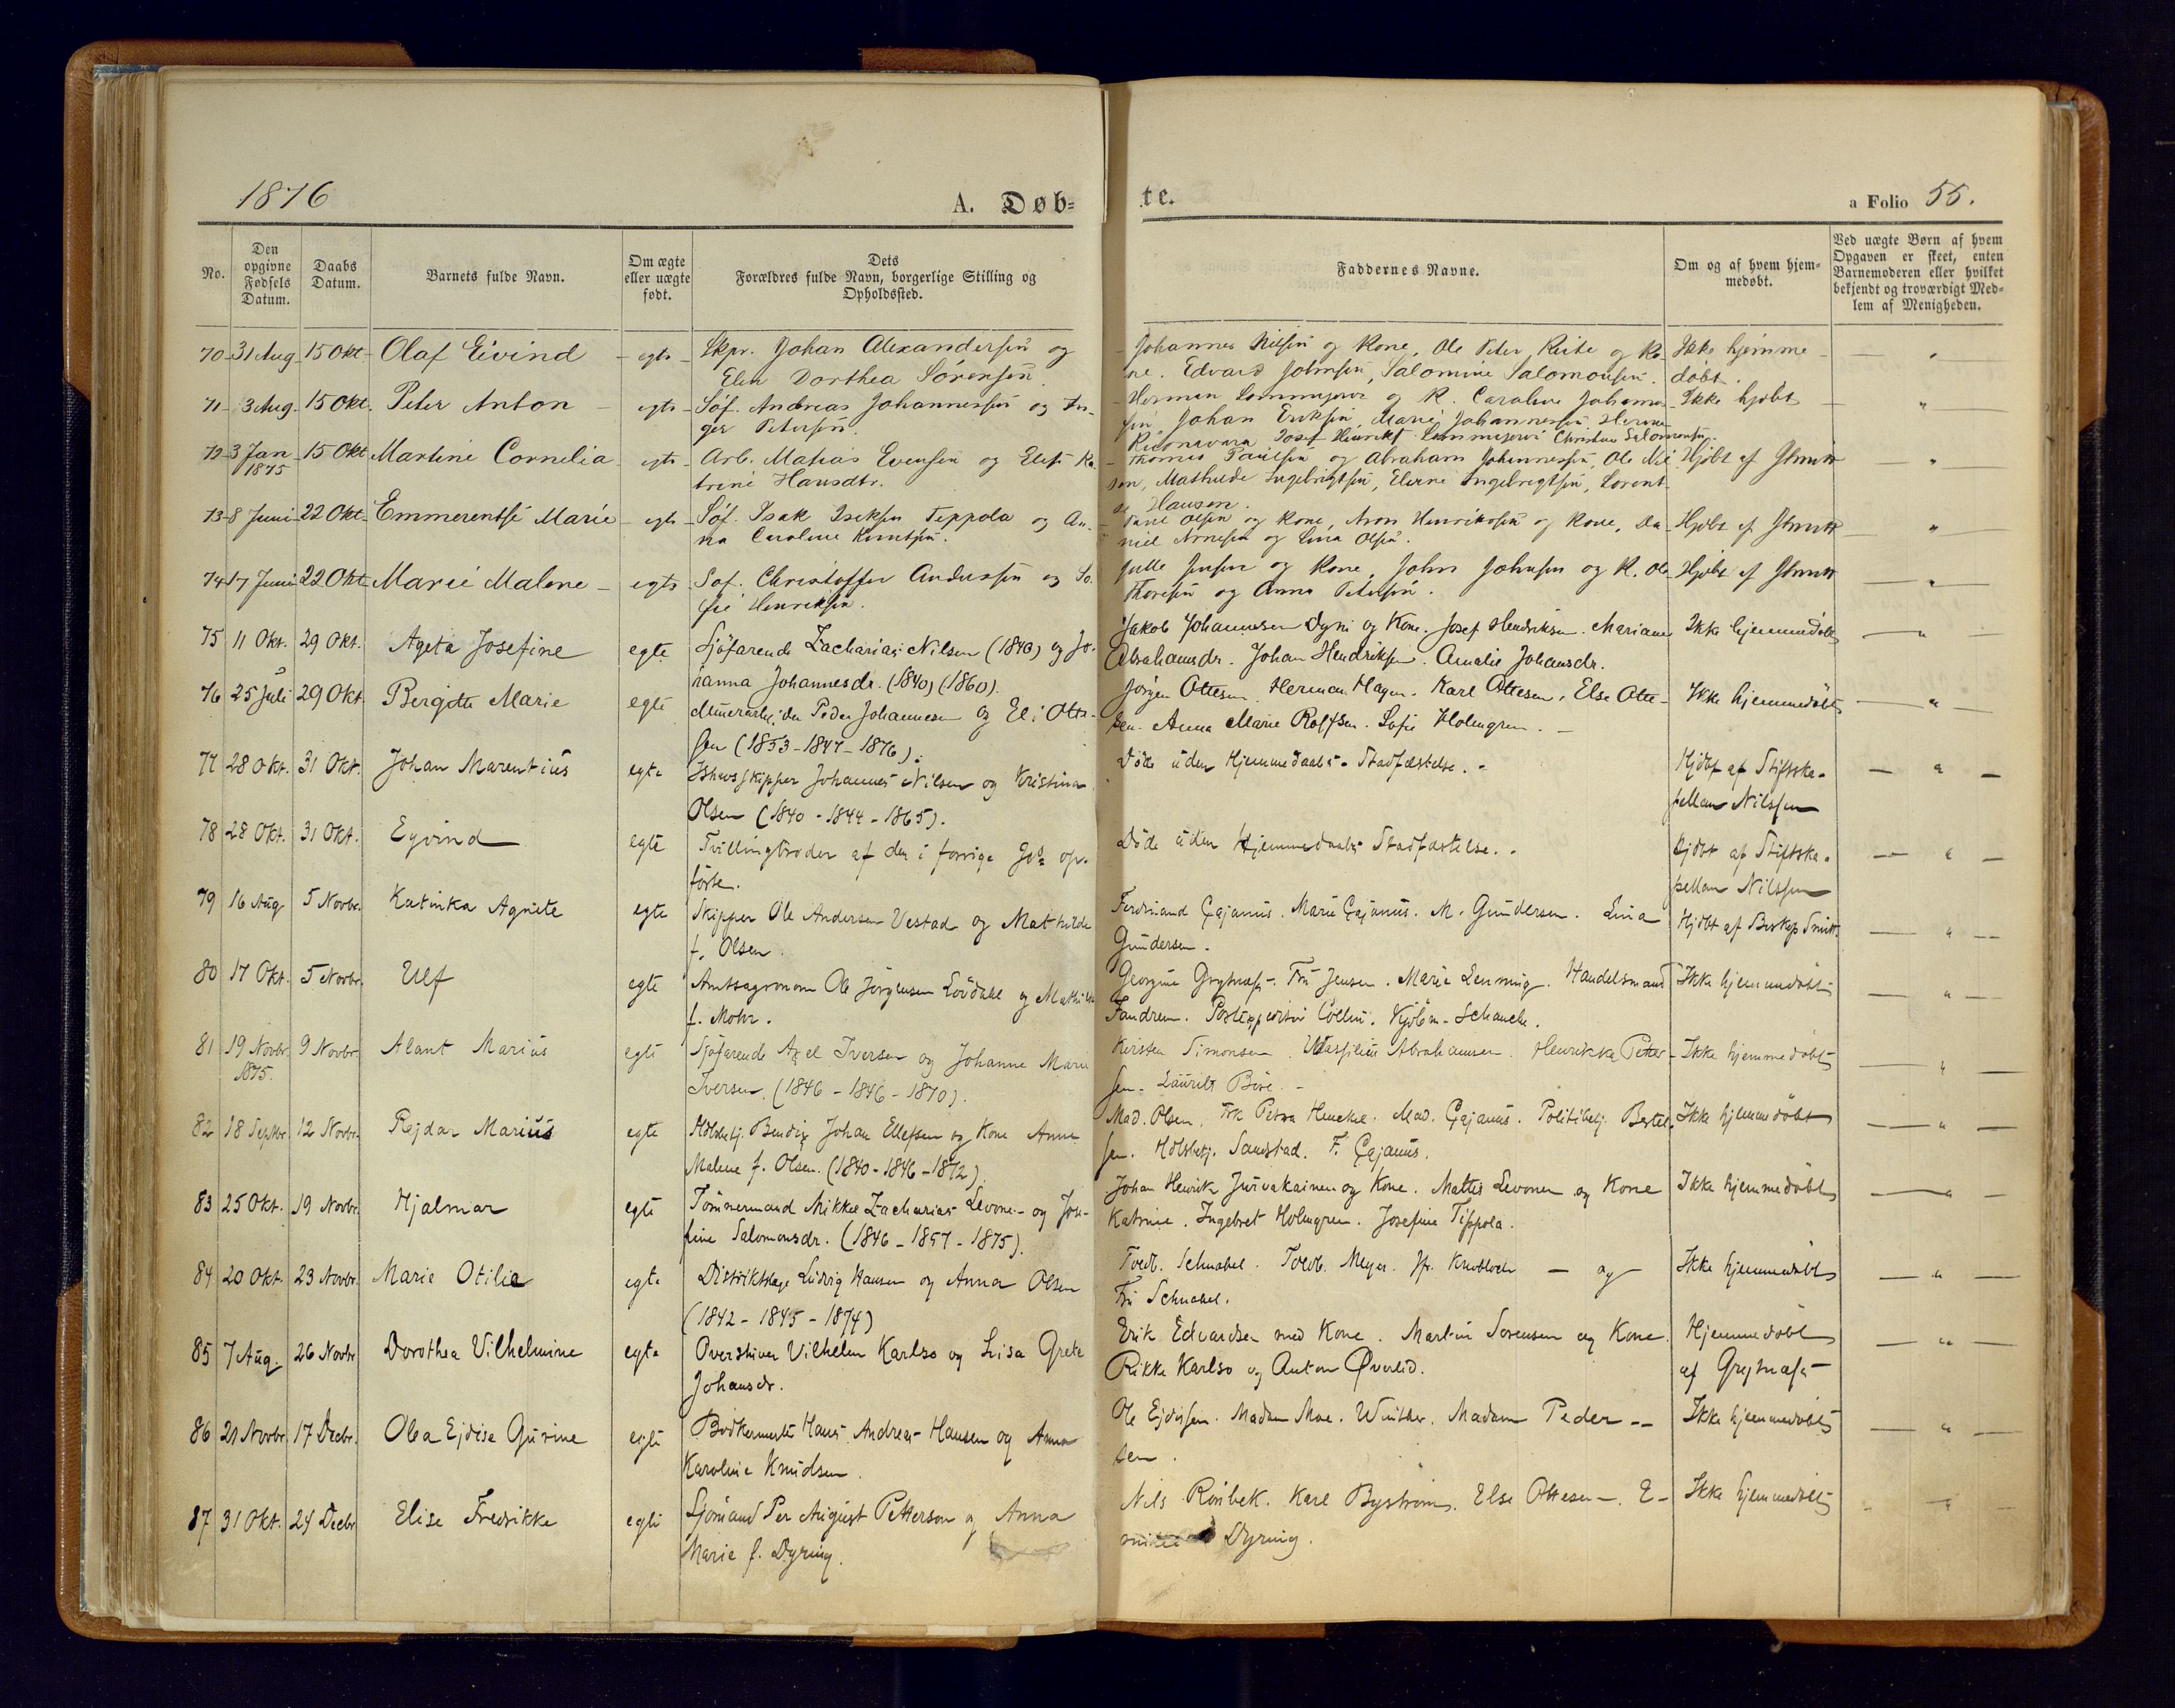 1876
A. Døb=
te.
a Folio 55.
No.
Den opgivne Fødsels Datum.
Daabs Datum.
Barnets fulde Navn.
Om ægte eller uægte født.
Dets Forældres fulde Navn, borgerlige Stilling og Opholdssted.
Faddernes Navne.
Om og af hvem hjem=
medøbt.
Ved uægte Børn af hvem
Opgaven er skeet, enten
Barnemoderen eller hvilket
bekjendt og troværdigt Med=
lem af Menigheden.
70 31 Aug 15 Okt Olaf Eivind egte Skpr. Johan Alexandersen og
Elen Dorthea Sørensen.
Johannes Nilsen og Kone, Ole Peter og Ko-
ne. Edvard Johnsen, Salomine Salomonsen.
Ikke hjemme
døbt.
71 3 Aug. 15 Okt. Peter Anton egte Søf. Andreas Johannessen og In-
ger Petersen.
Herman Lommejervi og K. Caroline Johannes-
sen, Johan Eriksen, Marie Johannessen,
Josef Henrikt Lommejervi Christine Salomonsen.
Ikke hjøbt
72 3 Jan 1875 15 Okt Martine Cornelia egte Arb. Matias Evensen og Elen Ka
trine Hansdtr.
Thomas Paulsen og Abraham Johannessen, Ole Nil
sen, Mathilde Ingebrigtsen, Elerne Ingebrigtsen, Lorent-
se Hansen.
Hjøbt af
73 8 Juni 22 Okt. Emmerentse Marie egte Søf. Isak Isaksen Teppola og An-
na Caroline Knutsen.
Olsen og Kone, Aron Henriksen og Kone, Da-
niel Arnesen og Lina Olsen.
Hjøbt af
74 17 Juni 22 Okt Marie Malene egte Søf. Christoffer Andersen og So
fie Henriksen.
Jensen og Kone, John Johnsen og K. Ole
Thoresen og Anna Petersen.
Hjøbt af
75 11 Okt. 29 Okt. Ageta Josefine egte Sjöfarende Zacharias Nilsen (1840) og Jo-
hanna Johannesdr. (1840) (1860).
Jakob Johannessen Dyni og Kone. Josef Hendriksen. Mariane
Abrahamsdr. Johan Hendriksen. Amalie Johansdr.
Ikke hjemmedøbt
76 25 Juli 29 Okt. Bergitte Marie egte Murerarbeider Peder Johannesen og Eli Otte-
sen (1853-1847-1876).
Jörgen Ottesen. Herman Hagen. Karl Ottesen. Else Otte-
sen. Anna Marie Rolfsen. Sofie Holmgren.
Ikke hjemmedöbt
77 28 Okt. 31 Okt. Johan Marentius egte Ishavsskipper Johannes Nilsen og Kristina
Olsen (1840 - 1844 - 1865).
Döde uden Hjemmedaabs-Stadfæstelse.
Hjöbt af Stiftska-
pellan Nilssen
78 28 Okt. 31 Okt. Eyvind egte Tvillingbroder af den i forrige No. op-
førte.
Döde uden Hjemmedaabs Stadfæstelse.
Hjöbt af Stiftska-
pellan Nilssen
79 16 Aug 5 Novbr. Katinka Agnete egte Skipper Ole Andersen Vestad og Mathilde
f. Olsen.
Ferdinand Cajanus. Marie Cajanus. M. Gundersen. Lina
Gundersen.
Hjöbt af Biskop Smitt
80 17 Okt. 5 Novbr. Ulf egte Amtsagronom Ole Jörgensen Lövdahl og Mathilde
f. Mohr.
Georgine Grythnæs. Fru Jensen. Marie Lenning. Handelsmand
Fandrem. Collin. Kjöbm. Schanche.
Ikke hjemmedöbt
81 19 Novbr. 1875. 9 Novbr. Alant Marius egte Sjöfarende Axel Iversen og Johanne Marie
Iversen. (1846 - 1846 - 1870).
Kirsten Simonsen. Abrahamsen. Henrikke Peter-
sen. Laurits Böie.
Ikke hjemmedöbt
82 18 Septbr. 12 Novbr. Rejdar Marius egte Bendix Johan Ellefsen og Kone Anne
Malene f. Olsen. (1840 - 1846 - 1872).
Mad. Olsen. Frk Petra Mad. Cajanus. Politibetj. Bertel-
sen. Sandstad. F. Cajanus.
Ikke hjemmedöbt
83 25 Okt. 19 Novbr. Hjalmar egte Tömmermand Mikkel Zacharias Levone og Jose-
fine Salomonsdr. (1846 - 1857 - 1875).
Johan Henrik Jurvakainen og Kone. Mattis Levonen og Kone
Katrine. Ingebret Holmgren. Josefine Tippola.
Ikke hjemmedöbt
84 20 Okt. 23 Novbr. Marie Otilie egte Distriktslæge Ludvig Hansen og Anna Olsen
(1842 - 1845 - 1874)
Toldb. Schnabel. Toldb. Meyer. og
Fru Schnabel.
Ikke hjemmedöbt
85 7 Aug. 26 Novbr Dorothea Vilhelmine egte Opvarter Vilhelm Karlso og Lisa Grete
Johansdr.
Erik Edvardsen med Kone. Martin Sorensen og Kone.
Rikke Karlso og Anton Øverlid.
Hjemmedöbt
af
86 21 Novbr. 17 Decbr. Olea Ejdise Gurine egte Bödkermester Hans Andreas Hansen og Anna
Karoline Knudsen.
Ole Ejdissen. Madam Moe. Winther. Madam Peder-
sen.
Ikke hjemmedöbt
87 31 Okt. 24 Decbr Elise Fredrikke egte Sjömand Per August Petterson og Anna
Marie f. Dyring.
Nils Rönbek. Karl Byström. Else Ottesen. E-
Dyring.
Ikke hjemmedöbt